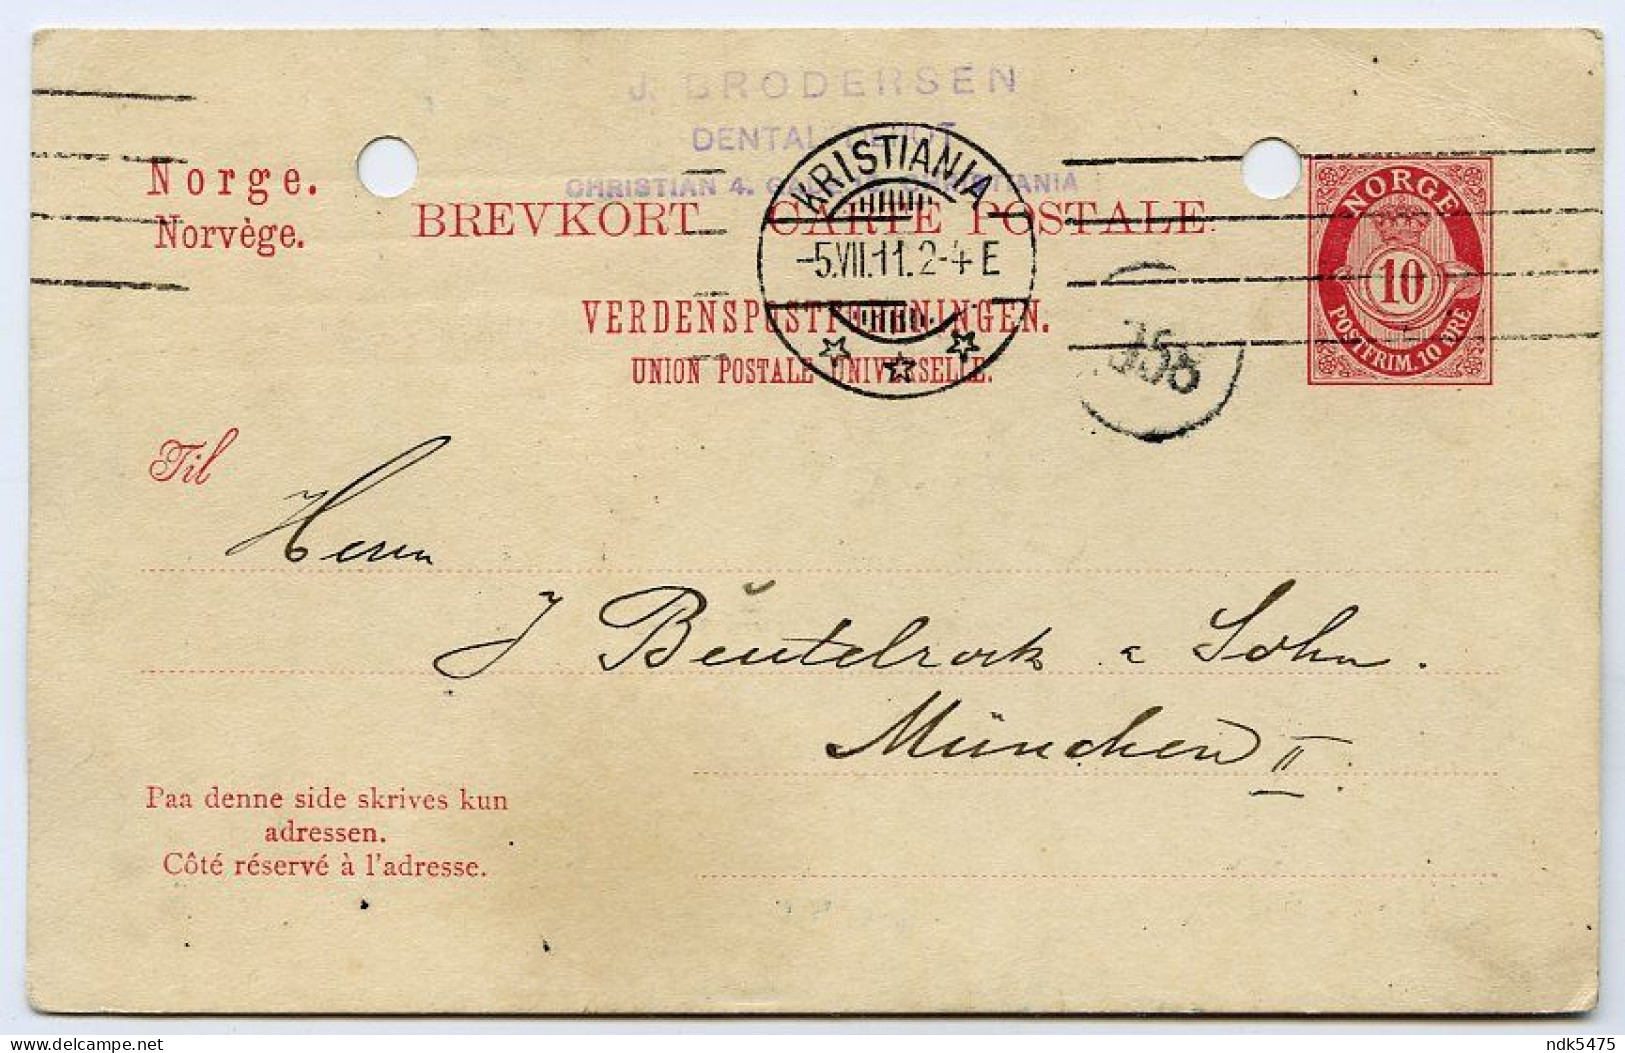 J. BRODERSEN
DENTAL DEPOT
CHRISTIAN 4. CHRISTIANIA
Norge.
Norvège.
BREVKORT CARTE POSTALE.
VERDENSPOSTFORENINGEN.
UNION POSTALE UNIVERSELLE.
KRISTIANIA
-5.VII.11.2-4 E
358
NORGE
10
POSTFRIM. 10 ØRE
Til
Herrn
J Beutelrock & Sohn.
München II.
Paa denne side skrives kun
adressen.
Côté réservé à l'adresse.
delcampe.net
ndk5475